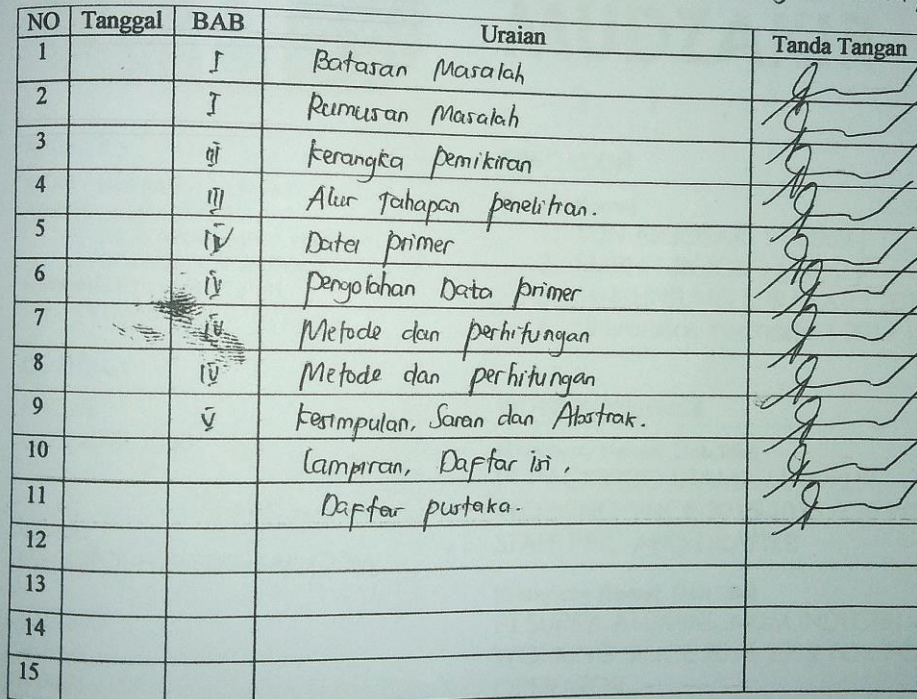 NO Tanggal BAB Uraian Tanda Tangan
1 I Batasan Masalah
2 I Rumusan Masalah
3 III Kerangka pemikiran
4 III Alur Tahapan penelitian.
5 IV Data primer
6 IV Pengolahan Data primer
7 IV Metode dan perhitungan
8 IV Metode dan perhitungan
9 V Kesimpulan, Saran dan Abstrak.
10 Lampiran, Daftar isi,
11 Daftar pustaka.
12
13
14
15